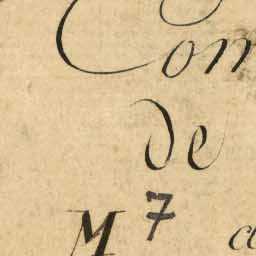 Com
de
M 7